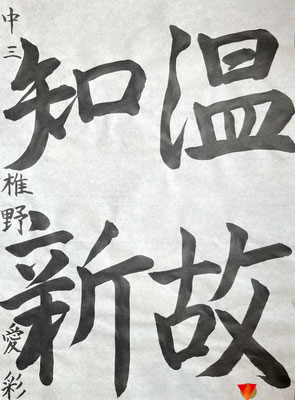 温故
知新
中三 椎野 愛彩